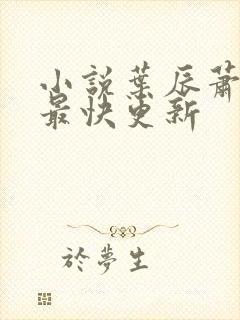 小說葉辰蕭
最快更新
於夢生